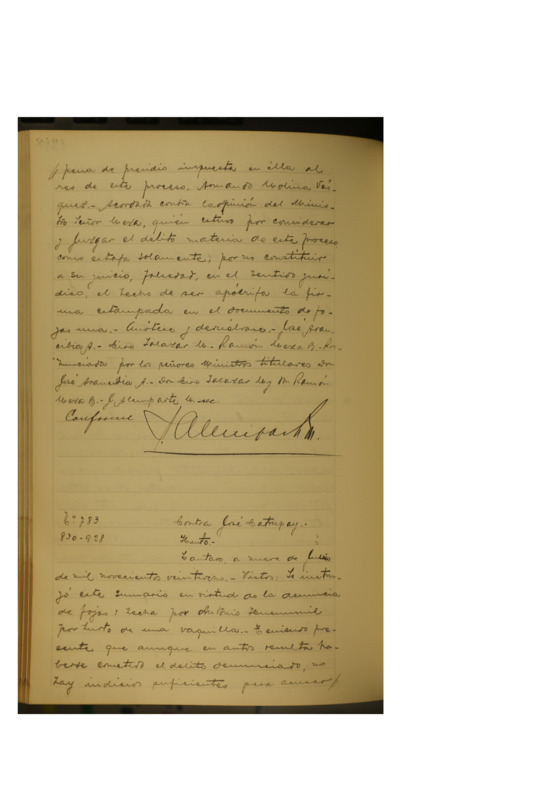 pena de presidio impuesta en ella al
reo de este proceso, Armando Molina Vás-
quez.- Acordada contra la opinión del Minis-
tro señor Meza, quién estuvo por considerar
y juzgar el delito materia de este proceso
como estafa solamente; por no constituir
a su juicio, falsedad, en el sentido jurí-
dico, el hecho de ser apócrifa la fir-
ma estampada en el documento de fo-
jas una.- Anótese y devuélvase.- José Aran-
cibia A.- Ciro Salazar M.- Ramón Meza B.- Pro-
nunciada por los señores Ministros titulares Dn
José Arancibia A.- Don Ciro Salazar M y Dn Ramón
Meza B.- J.
Conforme
N.° 783 Contra José Catrupay.
830-928 Hurto.-
a nueve de
de mil novecientos veintiocho.- Vistos: Se instru-
yó este sumario en virtud de la denuncia
de fojas 1 hecha por Antonio
por hurto de una vaquilla.- Teniendo pre-
sente que aunque en autos resulta ha-
berse cometido el delito denunciado, no
hay indicios suficientes para acusar